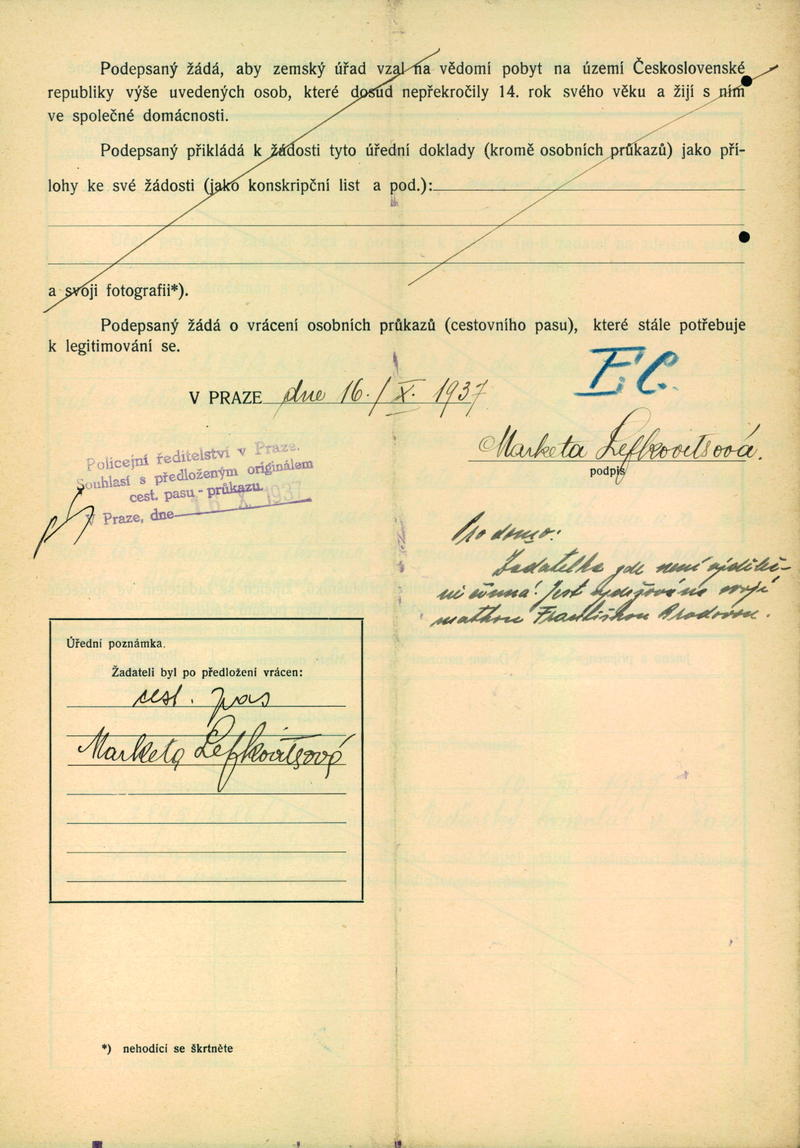 Podepsaný žádá, aby zemský úřad vzal na vědomí pobyt na území Československé
republiky výše uvedených osob, které dosud nepřekročily 14. rok svého věku a žijí s ním
ve společné domácnosti.
Podepsaný přikládá k žádosti tyto úřední doklady (kromě osobních průkazů) jako pří-
lohy ke své žádosti (jako konskripční list a pod.):
a svoji fotografii*).
Podepsaný žádá o vrácení osobních průkazů (cestovního pasu), které stále potřebuje
k legitimování se.
V PRAZE dne 16./X. 1937
Marketa Lefkovitsová.
podpis
Policejní ředitelství v Praze.
Souhlasí s předloženým originálem
cest. pasu - průkazu.
V Praze, dne 16 X 1937
Pro domo:
Žadatelka zde není výděleč-
ně činná! Jest vydržována svojí
matkou Františkou Brodovou.
Úřední poznámka.
Žadateli byl po předložení vrácen:
cest. pas
Marketa Lefkovitsová
*) nehodící se škrtněte